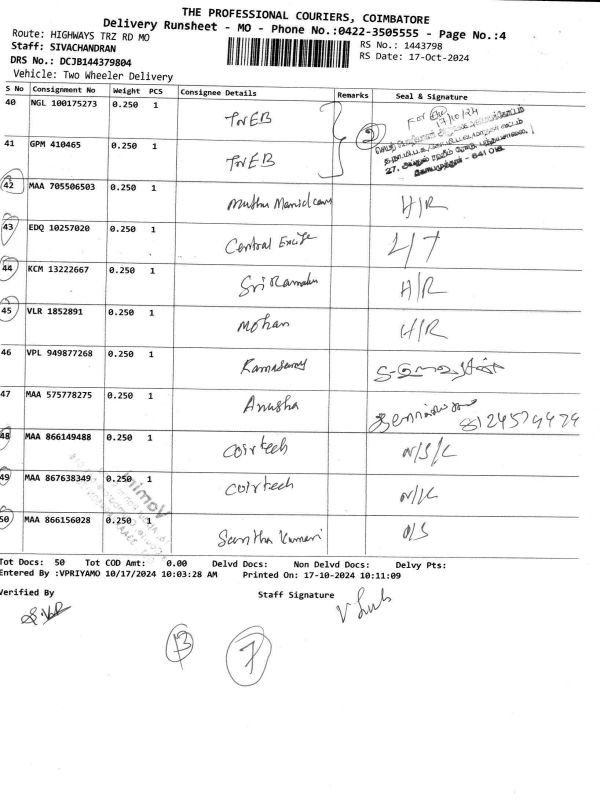 THE PROFESSIONAL COURIERS, COIMBATORE
Delivery Runsheet - MO - Phone No.:0422-3505555 - Page No.:4
Route: HIGHWAYS TRZ RD MO
RS No.: 1443798
Staff: SIVACHANDRAN
RS Date: 17-Oct-2024
DRS No.: DCJB144379804
Vehicle: Two Wheeler Delivery
S No Consignment No Weight PCS Consignee Details Remarks Seal & Signature
40 NGL 100175273 0.250 1 TNEB
For
17/10/24
27.
641 018
41 GPM 410465 0.250 1 TNEB
42 MAA 705506503 0.250 1 H/R
43 EDQ 10257020 0.250 1 Central Excise
44 KCM 13222667 0.250 1 H/R
45 VLR 1852891 0.250 1 Mohan H/R
46 VPL 949877268 0.250 1 Ramasamy
47 MAA 575778275 0.250 1 Anusha
48 MAA 866149488 0.250 1 Coirtech N/S/L
49 MAA 867638349 0.250 1 Coirtech
50 MAA 866156028 0.250 1 Santha Kumari O/S
Tot Docs: 50 Tot COD Amt: 0.00 Delvd Docs: Non Delvd Docs: Delvy Pts:
Entered By :VPRIYAMO 10/17/2024 10:03:28 AM Printed On: 17-10-2024 10:11:09
Verified By
Staff Signature
13
7